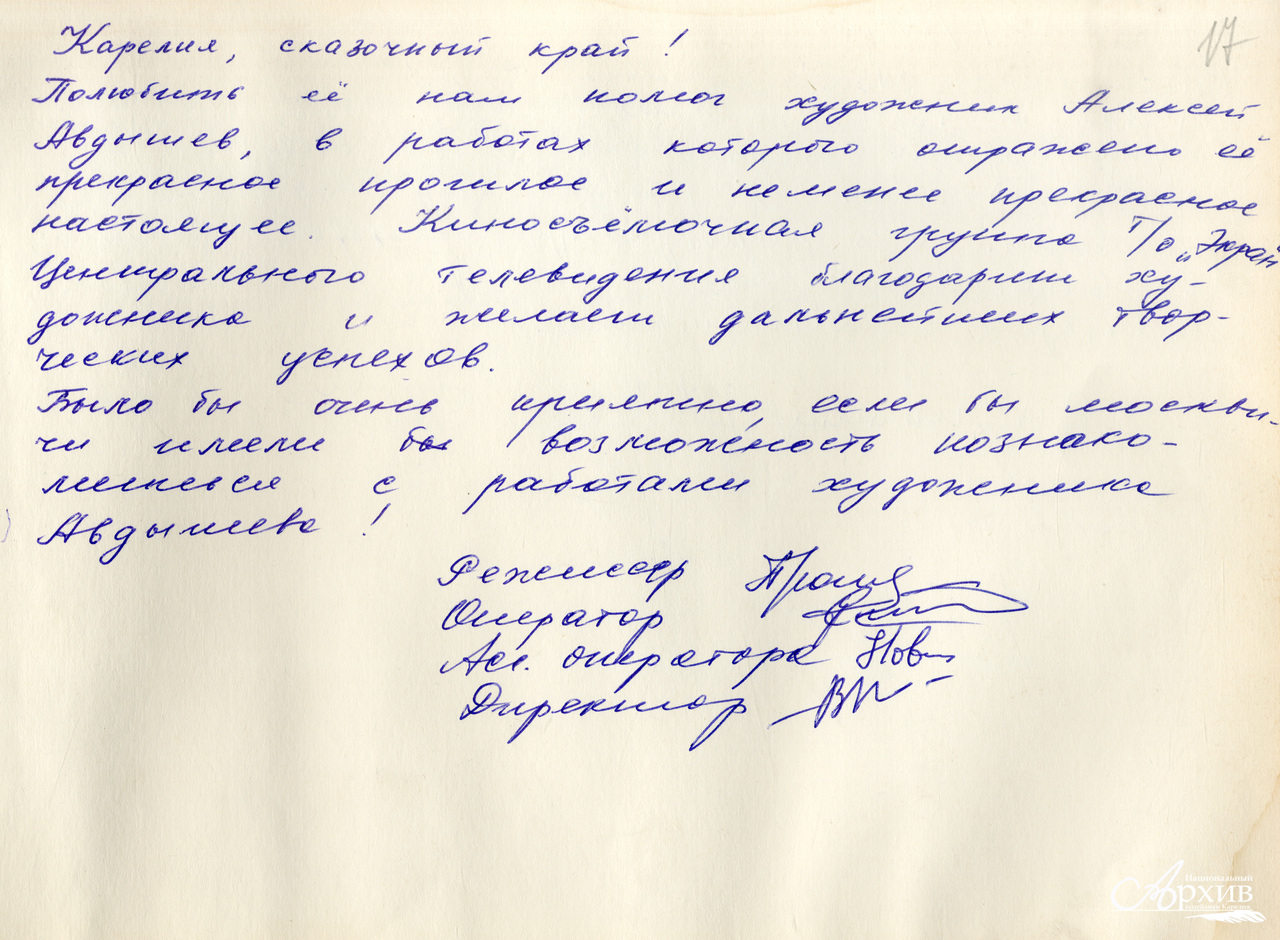 17
Карелия, сказочный край!
Полюбить её нам помог художник Алексей
Авдышев, в работах которого отражено её
прекрасное прошлое и неменее прекрасное
настоящее. Киносъёмочная группа Т/о „Экран
Центрального телевидения благодарит ху-
дожника и желает дальнейших твор-
ческих успехов.
Было бы очень приятно, если бы москви-
чи имели бы возможность познако-
миться с работами художника
Авдышева!
Режиссер
Оператор
Асс. оператора
Директор
Национальный
Архив
Республики Карелия